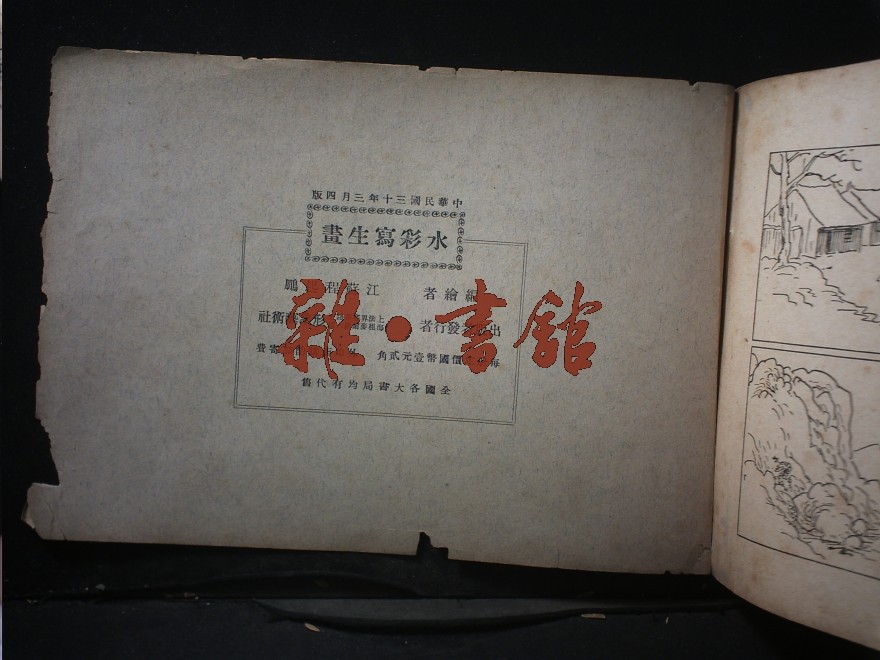 中華民國三十年三月四版
水彩寫生畫
編繪者 江蘇程鵬
出版兼發行者 上海法租界 術社
每 價國幣壹元貳角 寄費
全國各大書局均有代售
雜·書館